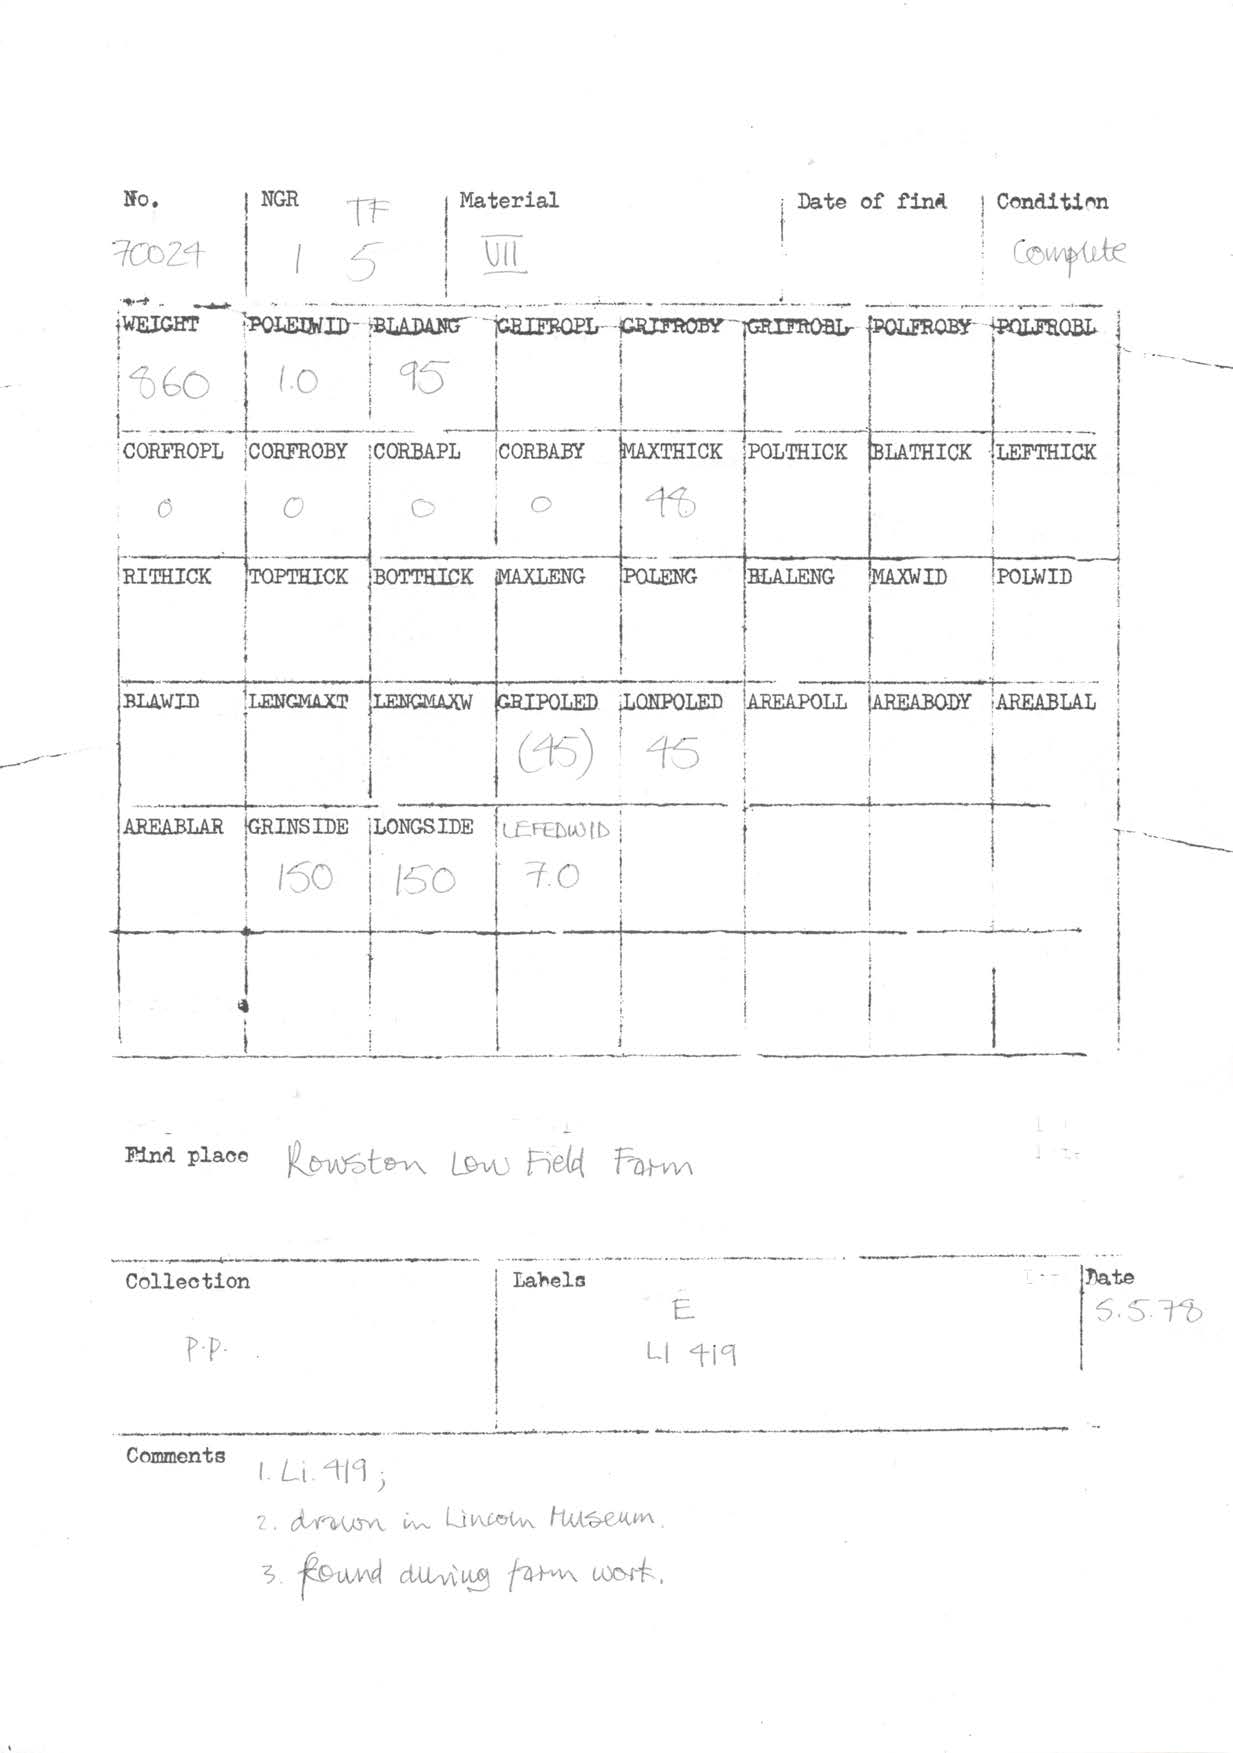 No. NGR TF Material Date of find Condition
70024 1 5 VII Complete
WEIGHT POLEDWID BLADANG GRIFROPL GRIFROBY GRIFROBL POLFROBY POLFROBL
860 1.0 95
CORFROPL CORFROBY CORBAPL CORBABY MAXTHICK POLTHICK BLATHICK LEFTHICK
0 0 0 0 48
RITHICK TOPTHICK BOTTHICK MAXLENG POLENG BLALENG MAXWID POLWID
BLAWID LENGMAXT LENGMAXW GRIPOLED LONPOLED AREAPOLL AREABODY AREABLAL
(45) 45
AREABLAR GRINSIDE LONGSIDE LEFEDWID
150 150 7.0
Find place Rowston Low Field Farm
Collection Labels Date
E 5.5.78
P.P. LI 419
Comments 1. Li. 419;
2. drawn in Lincoln Museum.
3. found during farm work.